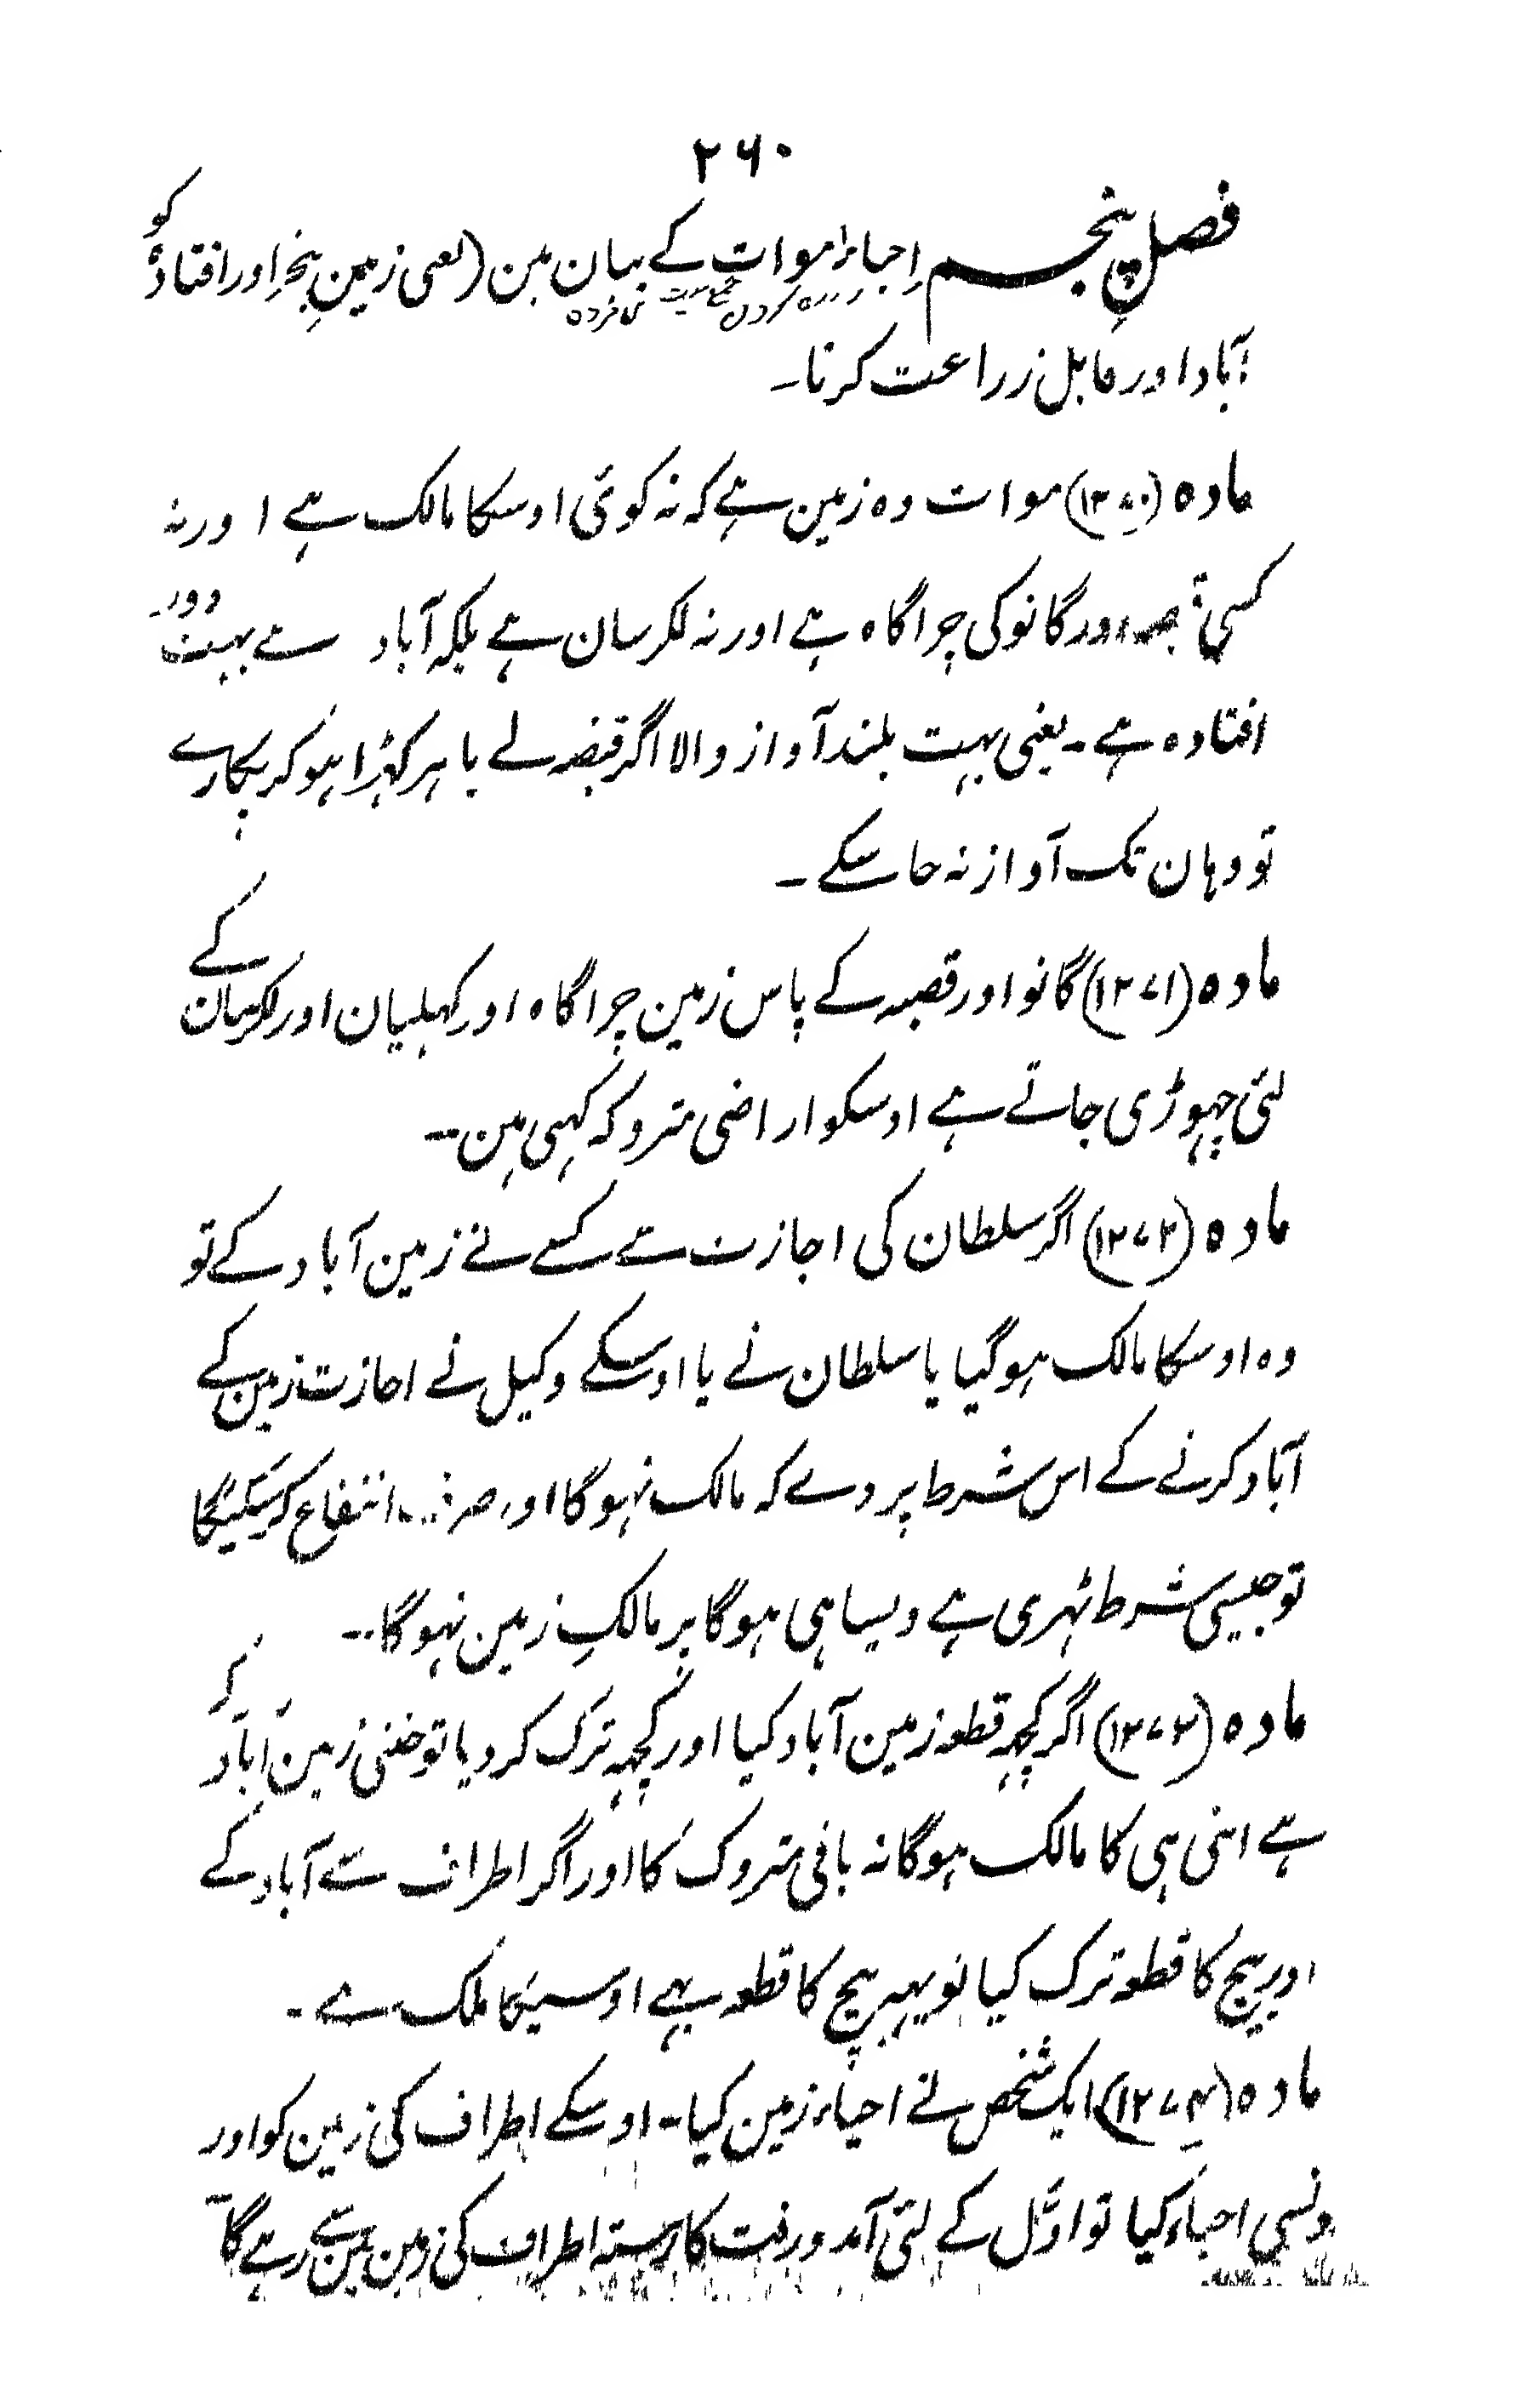 ۲۶۰
فصلِ پنجم اِحیاء اموات کے بیان مین (یعنی زمینِ بنجر اور افتادہ کو
آباد اور قابل زراعت کرنا۔
مادہ (۱۲۷۰) موات وہ زمین ہے کہ نہ کوئی اوسکا مالک ہے اور نہ
کسی قصبہ اور گانو کی چراگاہ ہے اور نہ لکرسان ہے بلکہ آباد سے بہت دور
افتادہ ہے۔ یعنی بہت بلند آواز والا اگر قبضہ لے باہر کہڑا ہو کر پکارے
تو وہان تک آواز نہ جاسکے۔
مادہ (۱۲۷۱) گانو اور قصبہ کے پاس زمین چراگاہ اور کہلیان اور لکرسان کے
لئی چہوڑی جاتے ہے اوسکو اراضی متروکہ کہی ہین۔
مادہ (۱۲۷۲) اگر سلطان کی اجازت سے کسے نے زمین آباد کے تو
وہ اوسکا مالک ہوگیا یا سلطان نے یا اوسکے وکیل نے اجازت زمین کے
آباد کرنے کے اس شرط پر دے کہ مالک نہوگا اور صرف انتفاع کرسکیگا
تو جیسی شرط ٹہری ہے ویسا ہی ہوگا پر مالکِ زمین نہوگا۔
مادہ (۱۲۷۳) اگر کچہہ قطعہ زمین آباد کیا اور کچہہ ترک کر دیا تو جتنی زمین آباد کر
ہے اتنی ہی کا مالک ہوگا نہ باقی متروک کا اور اگر اطراف سے آباد کے
اور بیچ کا قطعہ ترک کیا تو یہہ بیچ کا قطعہ بہے اوسیکا ملک ہے۔
مادہ (۱۲۷۴) ایک شخص نے احیاء زمین کیا۔ اوسکے اطراف کی زمین کو اور
ونسی احیاء کیا تو اوّل کے لئی آمد ورفت کا رستہ اطراف کی زمین مین سے رہے گا